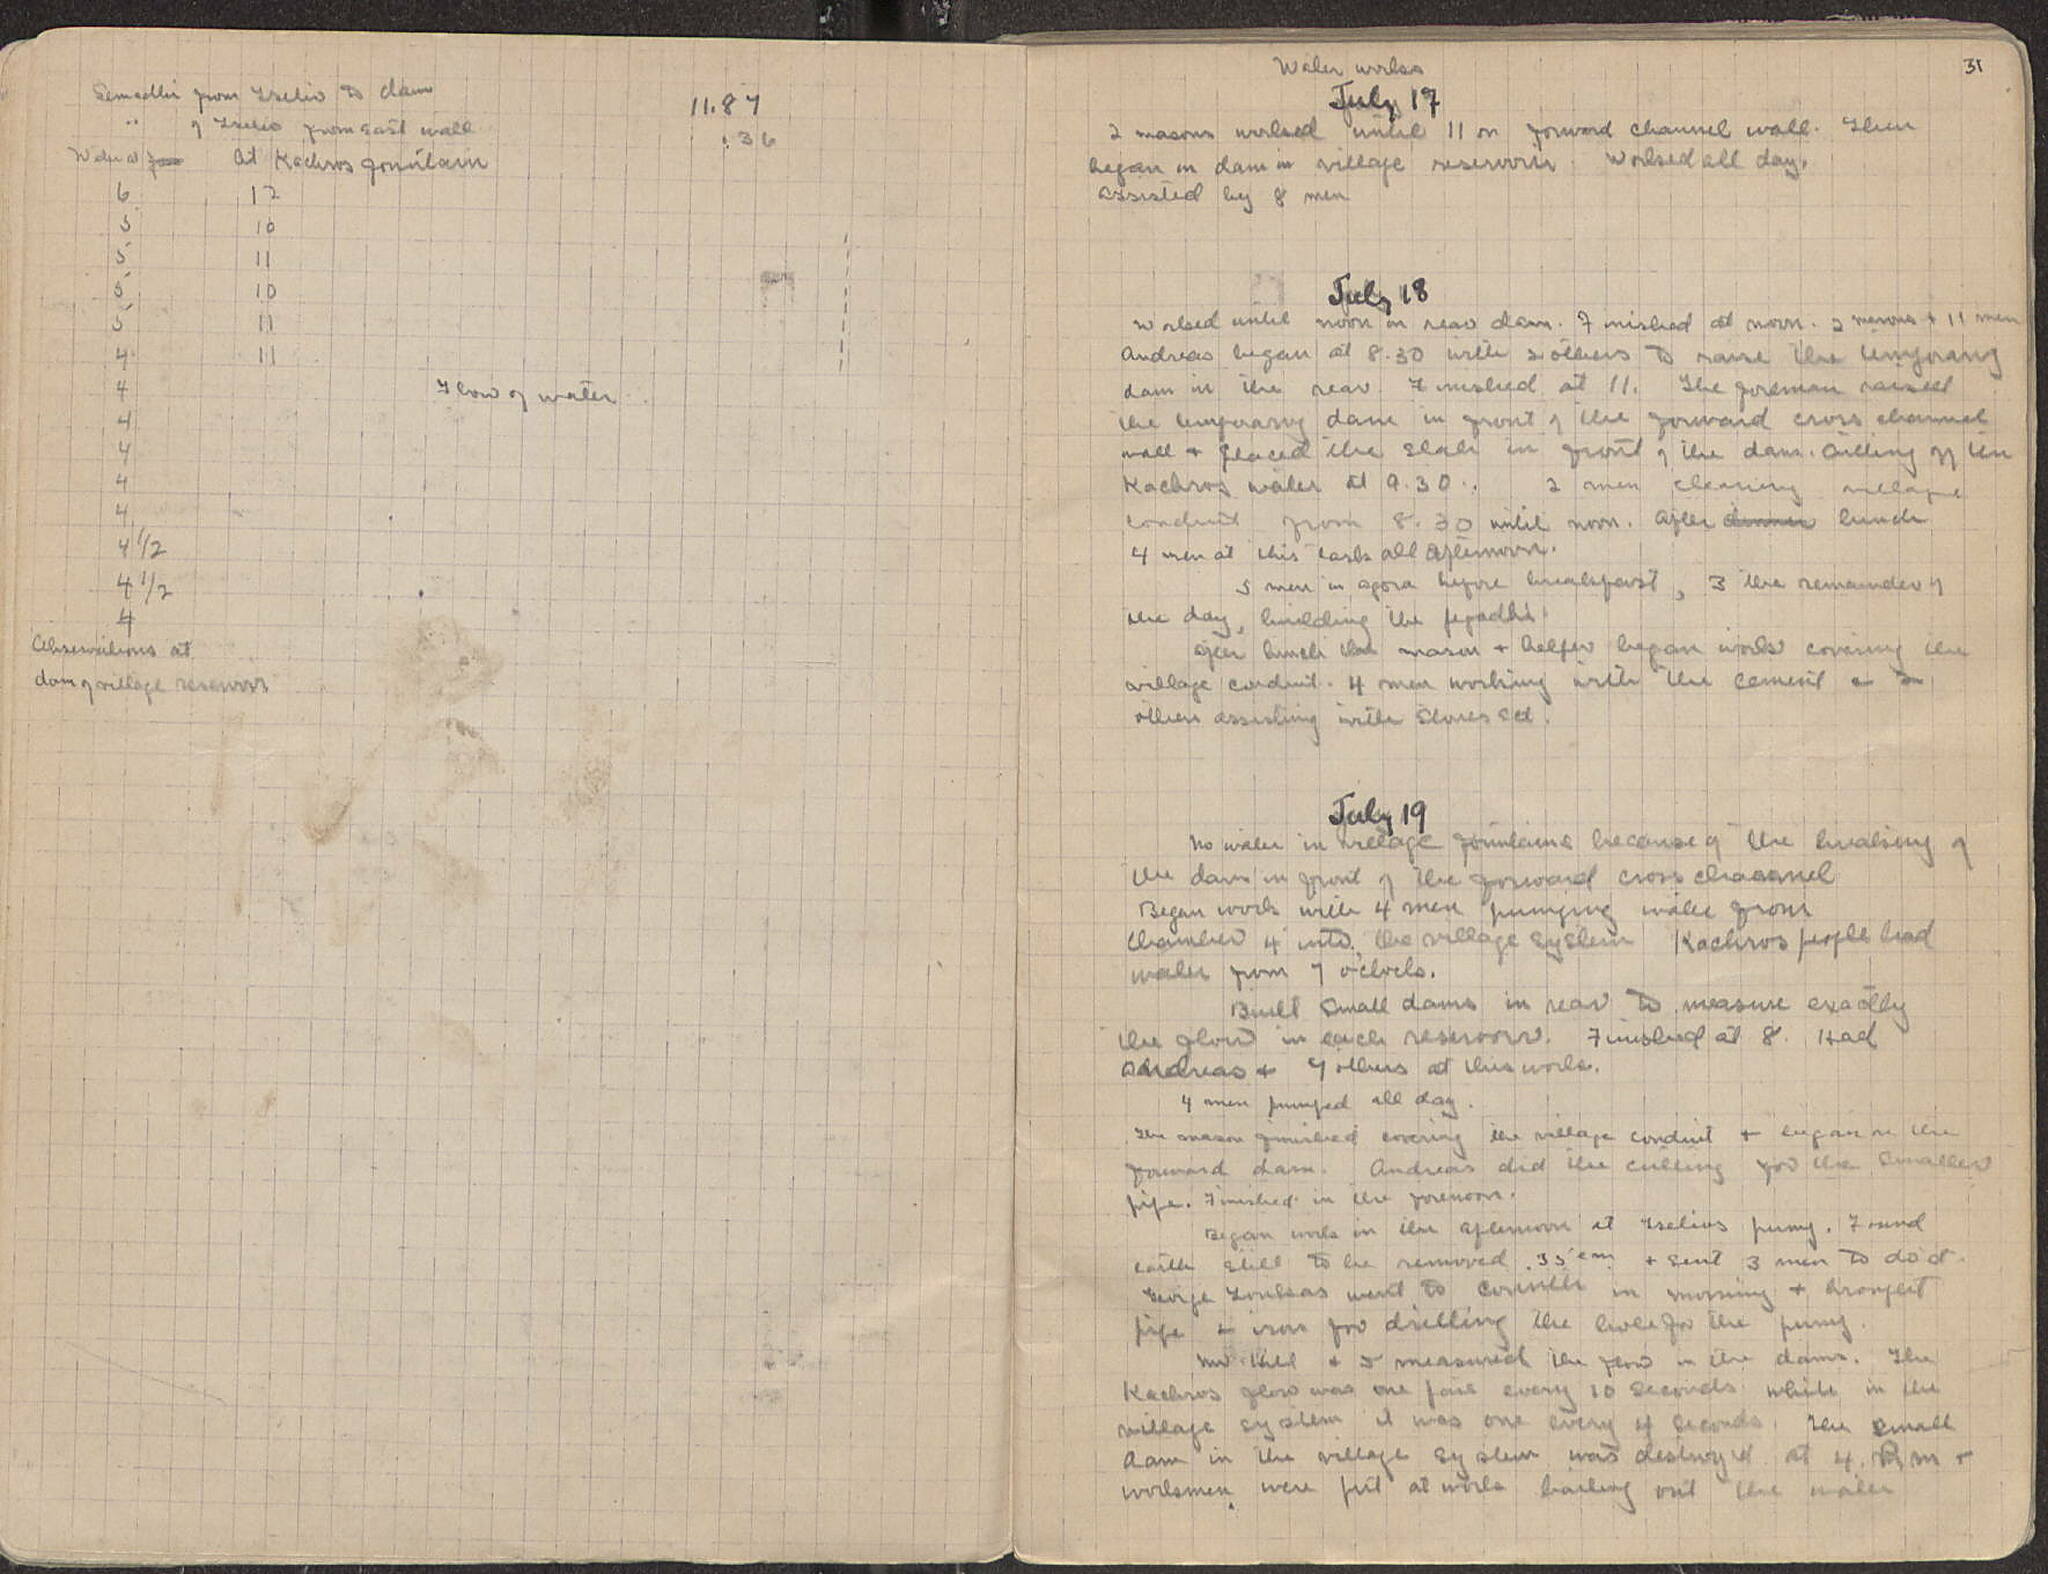 Semadhi from Tselio to dam 11.87
" of Tselio from east wall .36
Water at at Kachros fountain
6 12
5 10
5 11
5 10
5 11
4 11
4
Flow of water
4
4
4
4
4 1/2
4 1/2
4
Observations at
dam of village reservoir
31
Water works
July 17
2 masons worked until 11 on forward channel wall. Then
began on dam in village reservoir. Worked all day.
assisted by 8 men
July 18
Worked until noon on rear dam. Finished at noon. 2 masons + 11 men
Andreas began at 8.30 with 2 others to raise the temporary
dam in the rear. Finished at 11. The foreman raised
the temporary dam in front of the forward cross channel
wall + placed the slab in front of the dam. Cutting off the
Kachros water at 9.30. 2 men cleaning village
conduit from 8.30 until noon. After dinner lunch
4 men at this task all afternoon.
5 men in agora before breakfast, 3 the remainder of
the day, building the
After lunch the mason + helper began work covering the
village conduit. 4 men working with the cement + 2
others assisting with stones
July 19
No water in village fountains because of the breaking of
the dam in front of the forward cross channel
Began work with 4 men pumping water from
chamber 4 into the village system Kachros people had
water from 7 o'clock.
Built small dams in rear to measure exactly
the flow in each reservoir. Finished at 8. Had
Andreas + 7 others at this work.
4 men pumped all day.
The mason finished covering the village conduit + began on the
forward dam. Andreas did the cutting for the smaller
pipe. Finished in the forenoon.
Began work in the afternoon at Tselios pump. Found
earth still to be removed .35 cm + sent 3 men to do it.
George went to Corinth in morning + brought
pipe + iron for drilling the hole for the pump.
Mr Hill + I measured the flow in the dams. The
Kachros flow was one pail every 10 seconds while in the
village system it was one every 4 seconds. The small
dam in the village system was destroyed at 4. P.m +
workmen were put at work bailing out the water